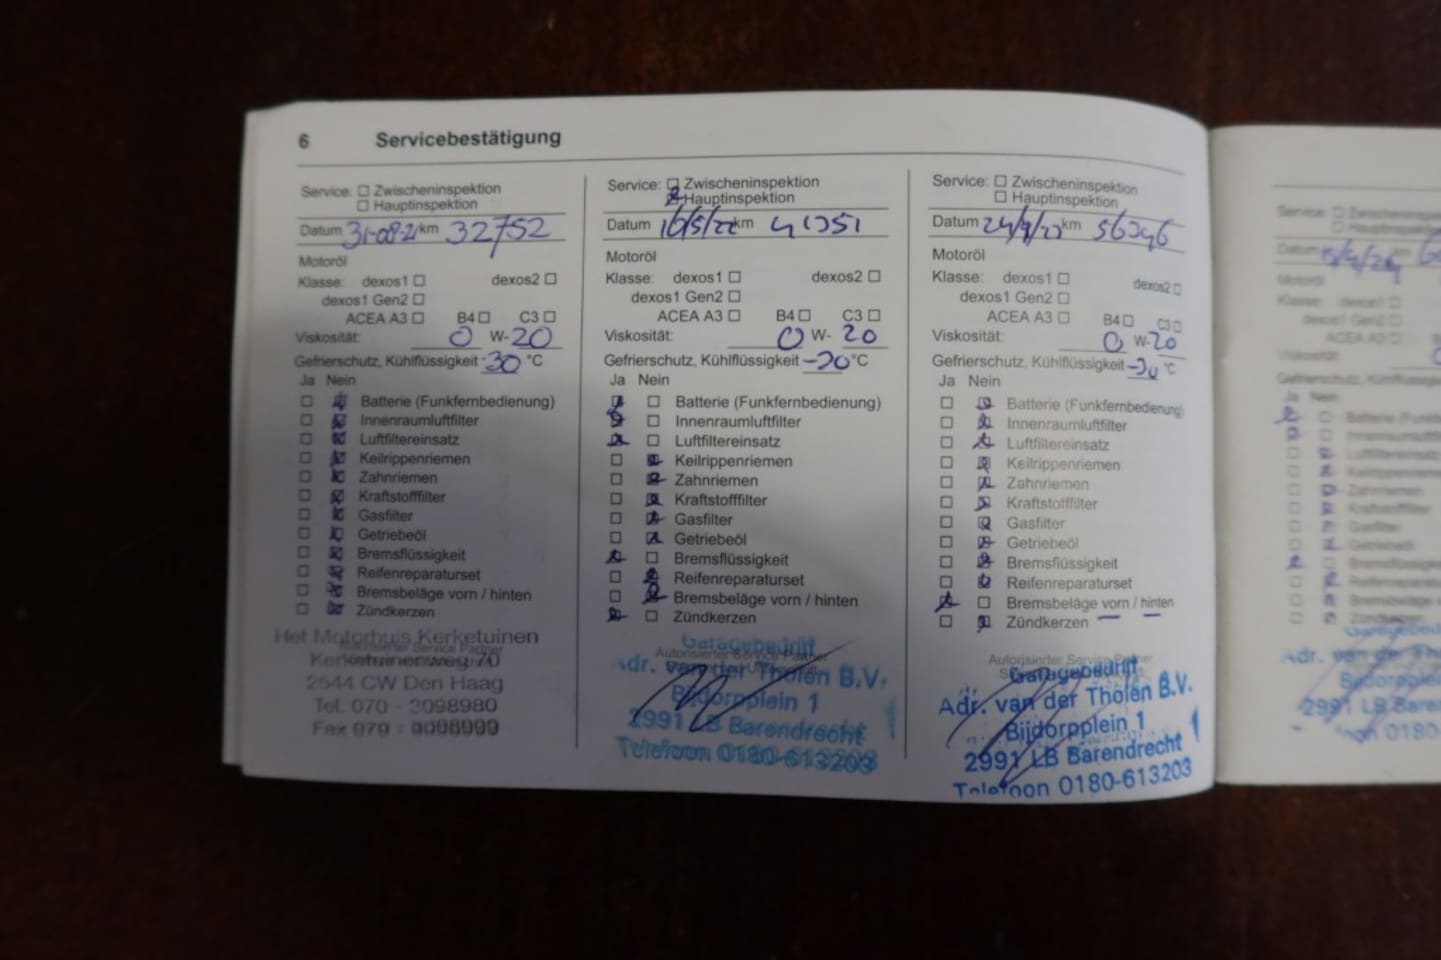 6 Servicebestätigung
Service: Zwischeninspektion
Hauptinspektion
Datum 31-08-21 km 32752
Motoröl
Klasse: dexos1 dexos2
dexos1 Gen2
ACEA A3 B4 C3
Viskosität: 0 W-20
Gefrierschutz, Kühlflüssigkeit -30 °C
Ja Nein
Batterie (Funkfernbedienung)
Innenraumluftfilter
Luftfiltereinsatz
Keilrippenriemen
Zahnriemen
Kraftstofffilter
Gasfilter
Getriebeöl
Bremsflüssigkeit
Reifenreparaturset
Bremsbeläge vorn / hinten
Zündkerzen
Het Motorhuis Kerketuinen
Autorisierter Service Partner
Kerketuinenweg 70
2544 CW Den Haag
Tel. 070 - 3098980
Fax 070 - 3098999
Service: Zwischeninspektion
Hauptinspektion
Datum 16/5/22 km
Motoröl
Klasse: dexos1 dexos2
dexos1 Gen2
ACEA A3 B4 C3
Viskosität: 0 W- 20
Gefrierschutz, Kühlflüssigkeit °C
Ja Nein
Batterie (Funkfernbedienung)
Innenraumluftfilter
Luftfiltereinsatz
Keilrippenriemen
Zahnriemen
Kraftstofffilter
Gasfilter
Getriebeöl
Bremsflüssigkeit
Reifenreparaturset
Bremsbeläge vorn / hinten
Zündkerzen
Garagebedrijf
Autorisierter Service Partner
Adr. van der Tholen B.V.
Bijdorpplein 1
2991 LB Barendrecht
Telefoon 0180-613203
Service: Zwischeninspektion
Hauptinspektion
Datum km
Motoröl
Klasse: dexos1 dexos2
dexos1 Gen2
ACEA A3 B4 C3
Viskosität: 0 W-20
Gefrierschutz, Kühlflüssigkeit °C
Ja Nein
Batterie (Funkfernbedienung)
Innenraumluftfilter
Luftfiltereinsatz
Keilrippenriemen
Zahnriemen
Kraftstofffilter
Gasfilter
Getriebeöl
Bremsflüssigkeit
Reifenreparaturset
Bremsbeläge vorn / hinten
Zündkerzen
Autorisierter Service Partner
Garagebedrijf
Adr. van der Tholen B.V.
Bijdorpplein 1
2991 LB Barendrecht
Telefoon 0180-613203
Service:
Datum
Motoröl
Klasse: dexos1
dexos1 Gen2
ACEA A3
Ja Nein
Adr. van
2991 LB
0180-